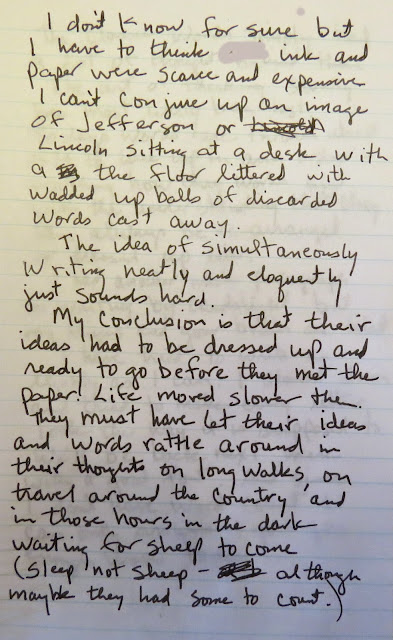 I don't know for sure but
I have to think ink and
paper were scarce and expensive
I can't conjure up an image
of Jefferson or Lincoln
Lincoln sitting at a desk with
a the floor littered with
wadded up balls of discarded
words cast away.
The idea of simultaneously
writing neatly and eloquently
just sounds hard.
My conclusion is that their
ideas had to be dressed up and
ready to go before they met the
paper! Life moved slower then.
They must have let their ideas
and words rattle around in
their thoughts on long walks, on
travel around the country, and
in those hours in the dark
waiting for sheep to come
(sleep not sheep - although
maybe they had some to count.)